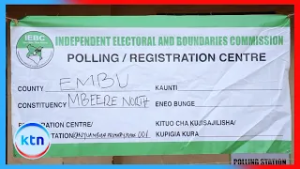 IEBC
INDEPENDENT ELECTORAL AND BOUNDARIES COMMISSION
POLLING / REGISTRATION CENTRE
COUNTY EMBU KAUNTI
CONSTITUENCY MBEERE NORTH ENEO BUNGE
CENTRE/ KITUO CHA KUJISAJILISHA/
KUPIGIA KURA
ktn
POLLING STATION